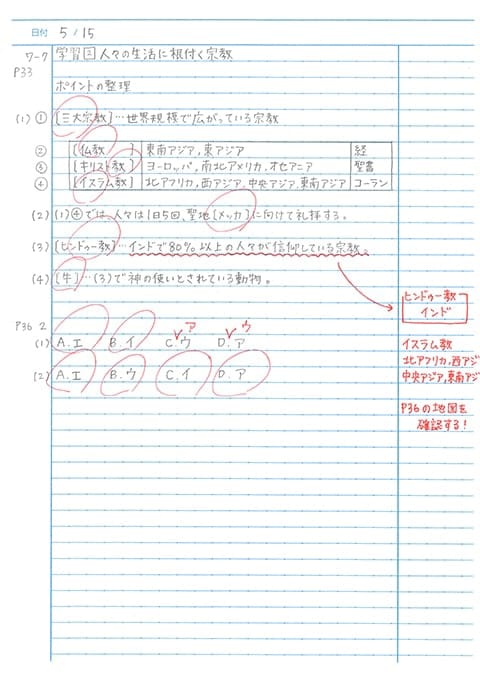 日付 5 / 15
ワーク 学習③ 人々の生活に根付く宗教
P33
ポイントの整理
(1) ① [三大宗教]…世界規模で広がっている宗教
② [仏教] 東南アジア,東アジア 経
③ [キリスト教] ヨーロッパ,南北アメリカ,オセアニア 聖書
④ [イスラム教] 北アフリカ,西アジア,中央アジア,東南アジア コーラン
(2) (1)④では、人々は1日5回、聖地[メッカ]に向けて礼拝する。
(3) [ヒンドゥー教]…インドで80%以上の人々が信仰している宗教。
(4) [牛]…(3)で神の使いとされている動物。
ヒンドゥー教
インド
P36 2
ア ウ
(1) A.エ B.イ C.ウ D.ア
イスラム教
北アフリカ,西アジ
(2) A.エ B.ウ C.イ D.ア
中央アジア,東南アジ
P36の地図を
確認する!